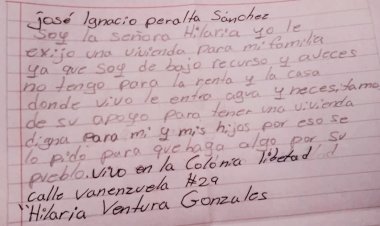 josé Ignacio peralta Sánchez
Soy la señora Hilaria yo le
exijo una vivienda para mi familia
ya que soy de bajo recurso y aveces
no tengo para la renta y la casa
donde vivo le entra agua y neces,tamo
de su apoyo para tener una vivienda
digna para mi y mis hijos por eso se
lo pido para que haga algo por su
pueblo. vivo en la Colonia libetad
calle vanenzuela #29
"Hilaria Ventura Gonzales